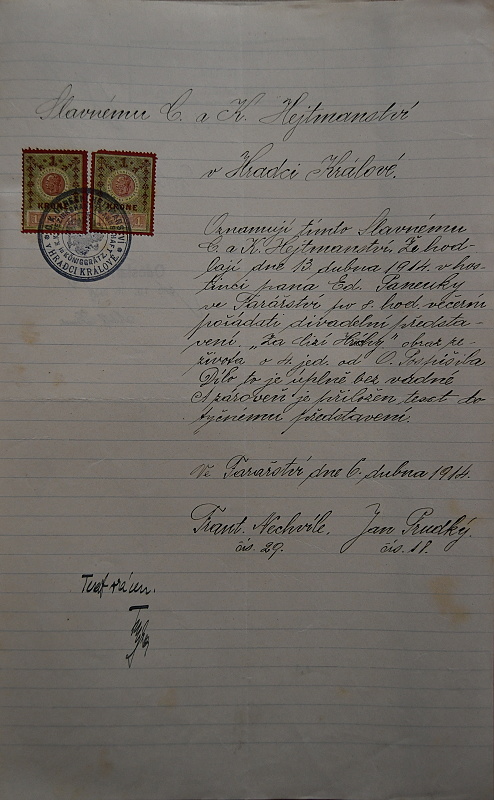 Slavnému C. a K. Hejtmanství
v Hradci Králové.
1 1
KRONE KRONE
V HRADCI KRÁLOVÉ
KÖNIGGRÄTZ
Oznamuji tímto Slavnému
C. a K. Hejtmanství. Že hod-
lají dne 13 dubna 1914. v hos-
tinci pana Ed. Panenky
ve Farářství po 8. hod. večerní
pořádati divadelní předsta-
vení. „Za cizí" obraz ze
života o 4. jed. od O. Pospíšila
Dílo to je úplně bez vadné
A zároveň je přiložen text do
tyčnému představení.
Ve Farářství dne 6. dubna 1914.
Frant. Nechvíle. Jan Prudký.
čís. 29. čís. 18.
Text vrácen.